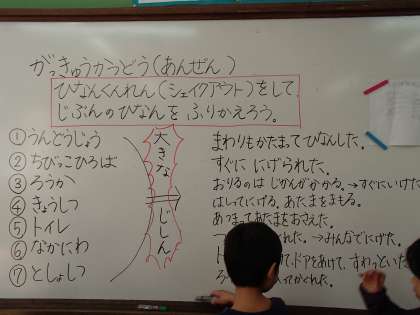 がっきゅうかつどう(あんぜん)
ひなんくんれん(シェイクアウト)をして、
じぶんのひなんを ふりかえろう。
①うんどうじょう
②ちびっこひろば
③ろうか
④きょうしつ
⑤トイレ
⑥なかにわ
⑦としょしつ
大きな
じしん
まわりもかたまってひなんした。
すぐに にげられた。
おりるのは じかんがかかる。→すぐにいけた
はしってにげる。あたまをまもる。
あつまってあたまをおさえた。
くれた。→みんなでにげた。
て、ドアをあけて、すわっていた
ってかくれた。